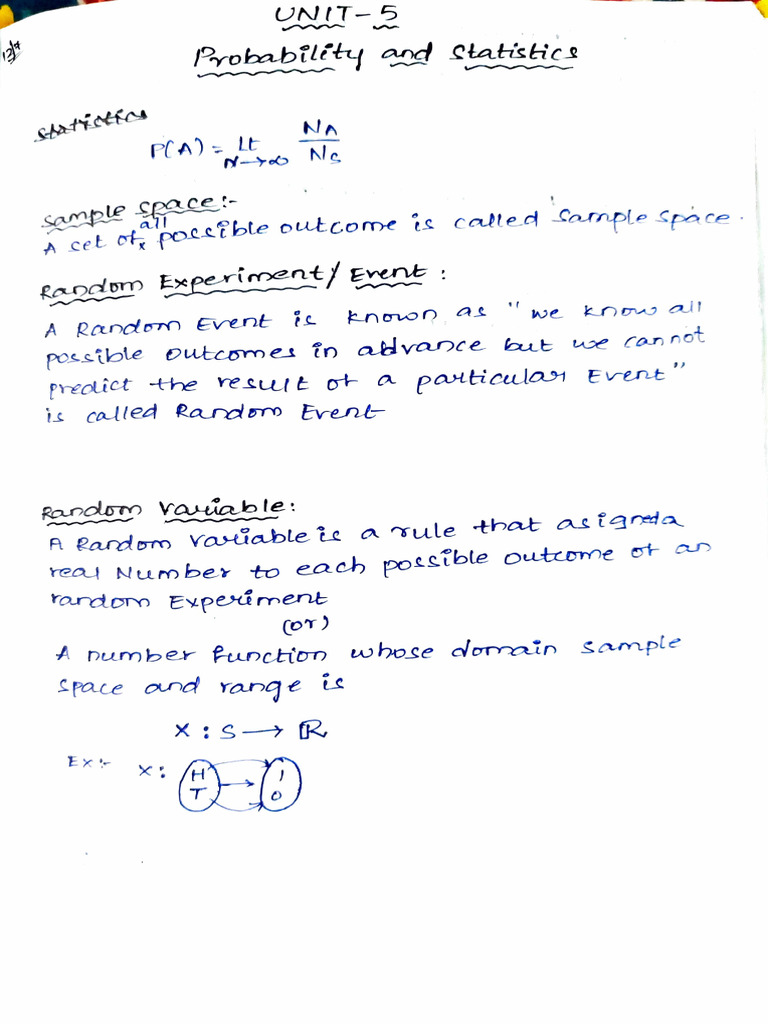 UNIT-5
Probability and Statistics
Statistics
P(A) = Lt N→∞ NA/NS
Sample space:-
A set of all possible outcome is called Sample space.
Random Experiment/Event:
A Random Event is known as "we know all
possible outcomes in advance but we cannot
predict the result of a particular Event"
is called Random Event
Random Variable:
A Random Variable is a rule that asigned a
real Number to each possible outcome of an
random Experiment
(or)
A number function whose domain sample
space and range is
X : S → ℝ
Ex:- X: H 1
T 0